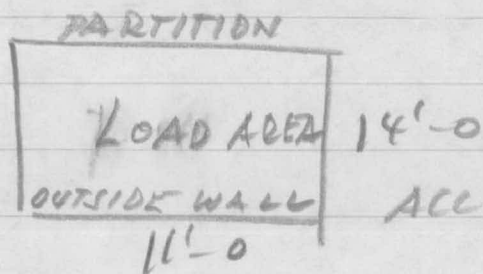 PARTITION
LOAD AREA 14'-0
OUTSIDE WALL ACC
11'-0